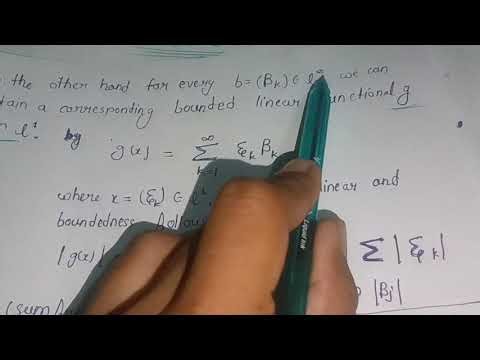 the other hand for every b=(βₖ) ∈ l^∞ we can
tain a corresponding bounded linear functional g
l¹. by
g(x) = Σ_{k=1}^{∞} ξₖ βₖ
where x = (ξₖ) ∈ l¹ linear and
boundedness follows
|g(x)| Σ |ξₖ|
|βⱼ|
(sum